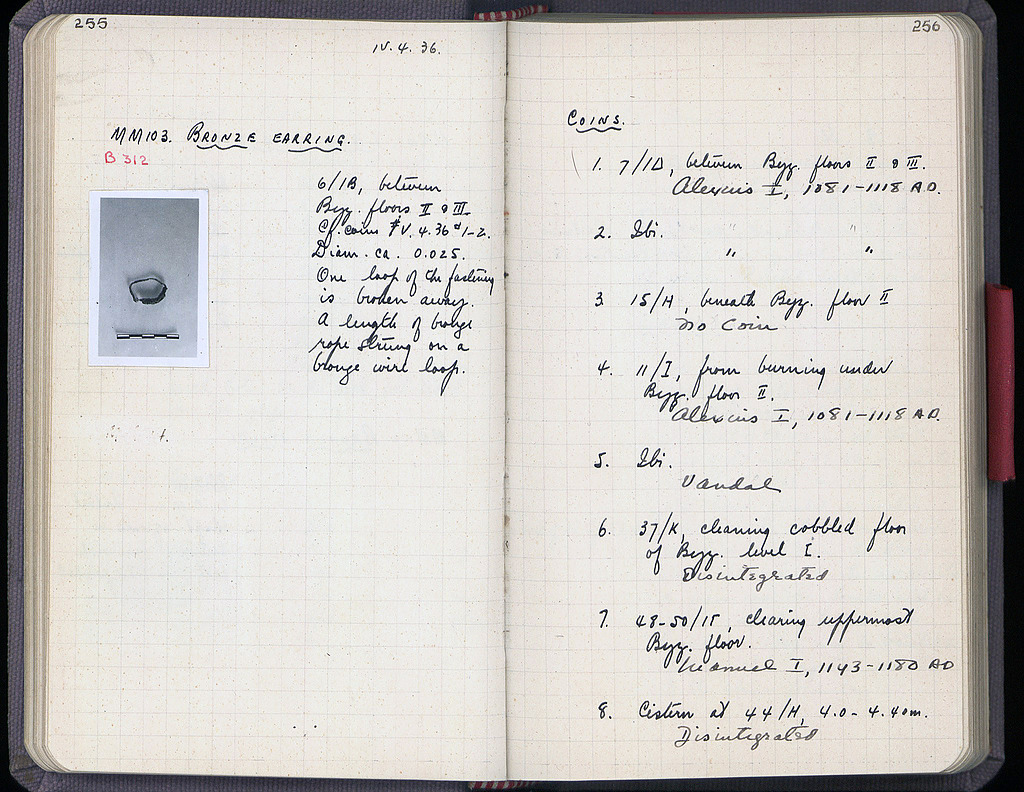 255
IV. 4. 36.
MM103. BRONZE EARRING.
B 312
6/IB, between
Byz. floors II & III.
Cf. coins #V. 4. 36 #1-2.
Diam. ca. 0.025.
One loop of the fastening
is broken away.
A length of bronze
rope strung on a
bronze wire loop.
256
COINS.
1. 7/ID, between Byz. floors II & III.
Alexius I, 1081-1118 A.D.
2. Ibi. " "
" "
3. 15/H, beneath Byz. floor II
No Coin
4. 11/I, from burning under
Byz. floor II.
Alexius I, 1081-1118 A.D.
5. Ibi.
Vandal
6. 37/K, cleaning cobbled floor
of Byz. level I.
Disintegrated
7. 48-50/IE, clearing uppermost
Byz. floor.
Manuel I, 1143-1180 AD
8. Cistern at 44/H, 4.0-4.40m.
Disintegrated